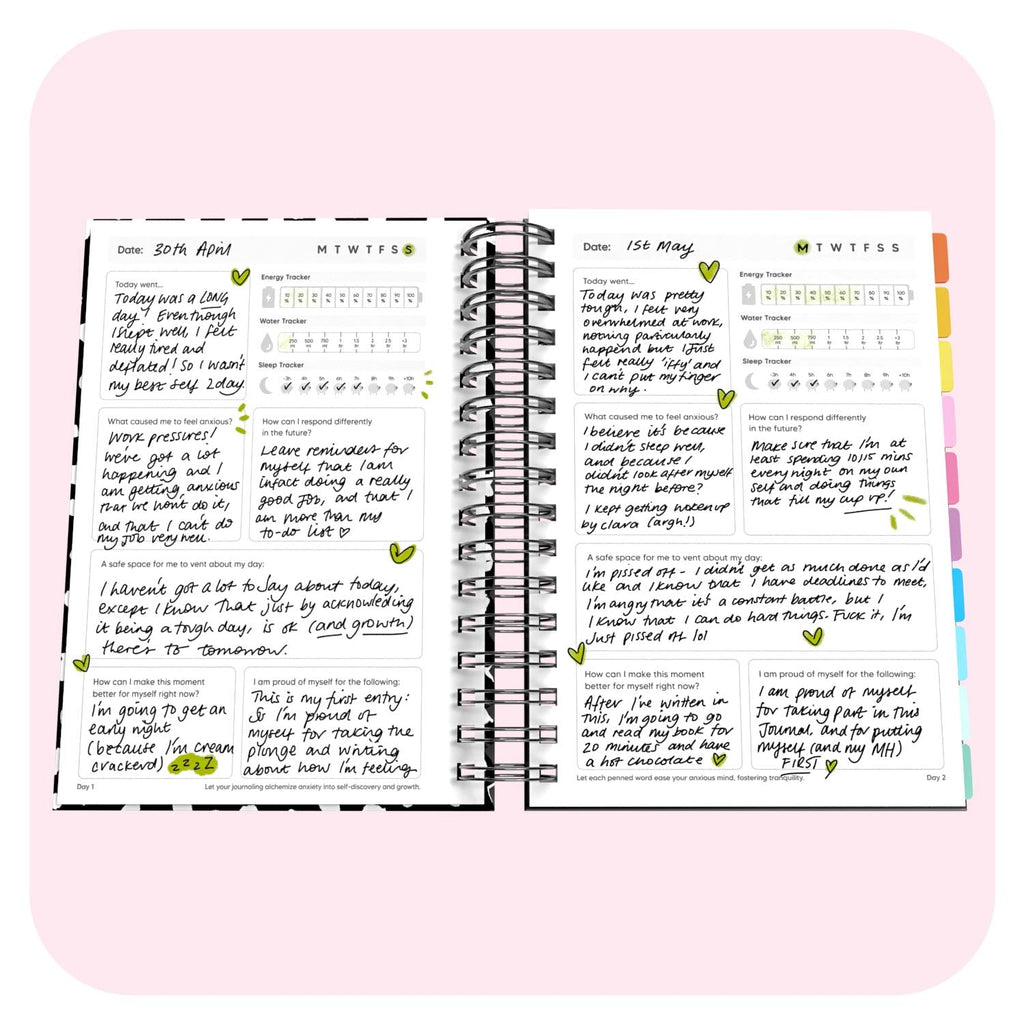 Date: 30th April
M T W T F S S
Today went...
Today was a LONG
day! Even though
I slept well, I felt
really tired and
deflated! So I wasn't
my best self 2day.
Energy Tracker
10 % 20 % 30 % 40 % 50 % 60 % 70 % 80 % 90 % 100 %
Water Tracker
250 ml 500 ml 750 ml 1 ltr 1.5 ltr 2 ltr 2.5 ltr +3 ltr
Sleep Tracker
-3h 4h 5h 6h 7h 8h 9h +10h
What caused me to feel anxious?
Work pressures!
We've got a lot
happening and I
am getting anxious
that we won't do it,
and that I can't do
my job very well.
How can I respond differently
in the future?
Leave reminders for
myself that I am
infact doing a really
good job, and that I
am more than my
to-do list ♡
A safe space for me to vent about my day:
I haven't got a lot to say about today,
except I know that just by acknowledging
it being a tough day, is ok (and growth)
there's to tomorrow.
How can I make this moment
better for myself right now?
I'm going to get an
early night
(because I'm cream
crackerd) zzzZ
I am proud of myself for the following:
This is my first entry:
So I'm proud of
myself for taking the
plonge and writing
about how I'm feeling
Day 1
Let your journaling alchemize anxiety into self-discovery and growth.
Date: 1st May
M T W T F S S
Today went...
Today was pretty
tough, I felt very
overwhelmed at work,
nothing particularly
happend but I just
felt really 'iffy' and
I can't put my finger
on why.
Energy Tracker
10 % 20 % 30 % 40 % 50 % 60 % 70 % 80 % 90 % 100 %
Water Tracker
250 ml 500 ml 750 ml 1 ltr 1.5 ltr 2 ltr 2.5 ltr +3 ltr
Sleep Tracker
-3h 4h 5h 6h 7h 8h 9h +10h
What caused me to feel anxious?
I believe it's because
I didn't sleep well,
and because I
didn't look after myself
the night before?
I kept getting woken up
by Clara (argh!)
How can I respond differently
in the future?
Make sure that I'm at
least spending 10/15 mins
every night on my own
self and doing things
that fill my cup up!
A safe space for me to vent about my day:
I'm pissed off - I didn't get as much done as I'd
like and I know that I have deadlines to meet.
I'm angry that it's a constant battle, but I
I know that I can do hard things. Fuck it, I'm
just pissed off lol
How can I make this moment
better for myself right now?
After I've written in
this, I'm going to go
and read my book for
20 minutes and have
a hot chocolate
I am proud of myself for the following:
I am proud of myself
for taking part in this
journal, and for putting
myself (and my MH)
FIRST
Let each penned word ease your anxious mind, fostering tranquility.
Day 2